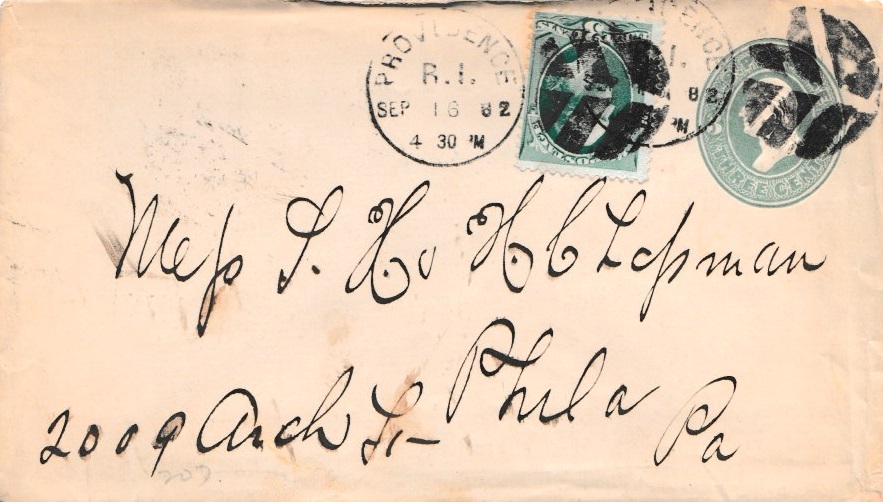 PROVIDENCE
R.I.
SEP 16 82
4 30 PM
82
PM
THREE CENTS
Mess S. H. & H. C. Lipman
2009 Arch St Phila Pa
207